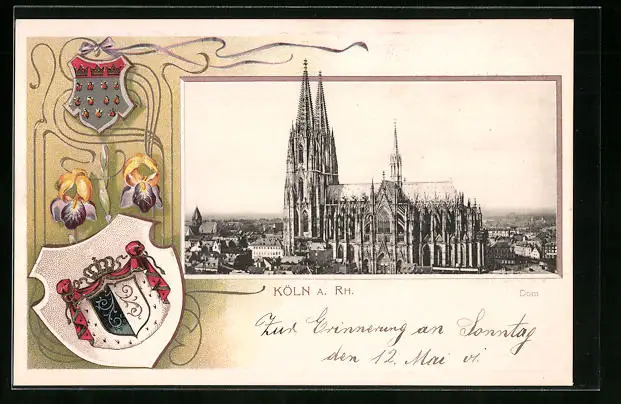 KÖLN A. RH.
Dom
Zur Erinnerung an Sonntag
den 12. Mai 01.